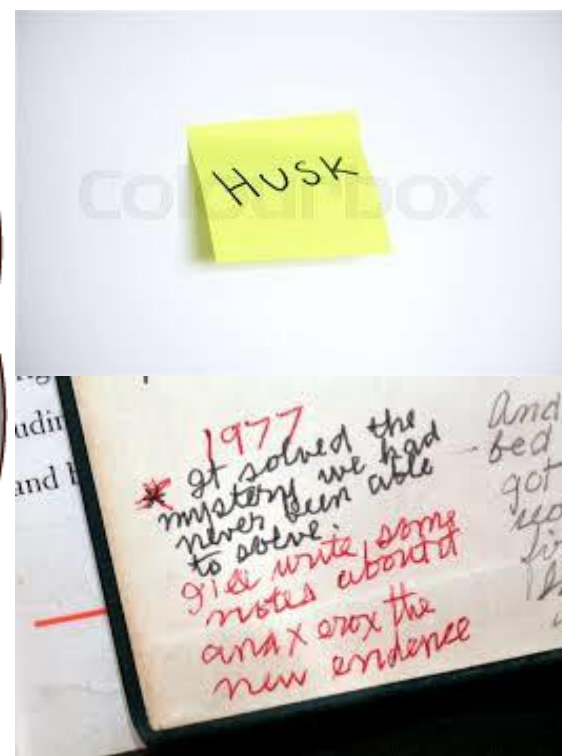 HUSK
Colourbox
udin
and
1977
* It solved the
mystery we had
never been able
to solve.
I'll write some
notes about it
and xerox the
new evidence
And
bed
got